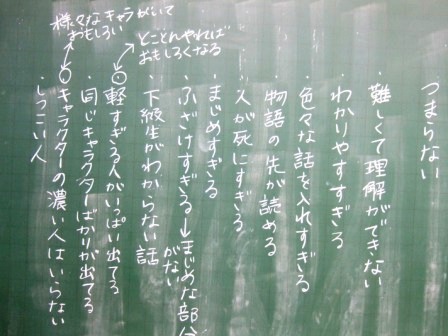 つまらない
・難しくて理解ができない
・わかりやすすぎる
・色々な話を入れすぎる
・物語の先が読める
・人が死にすぎる
・まじめすぎる
・ふざけすぎる→まじめな部分がない
・下級生がわからない話
・軽すぎる人がいっぱい出てる
どことんやれば
おもしろくなる
・同じキャラクターばかりが出てる
・キャラクターの濃い人はいらない
様々なキャラがいて
おもしろい
・しつこい人